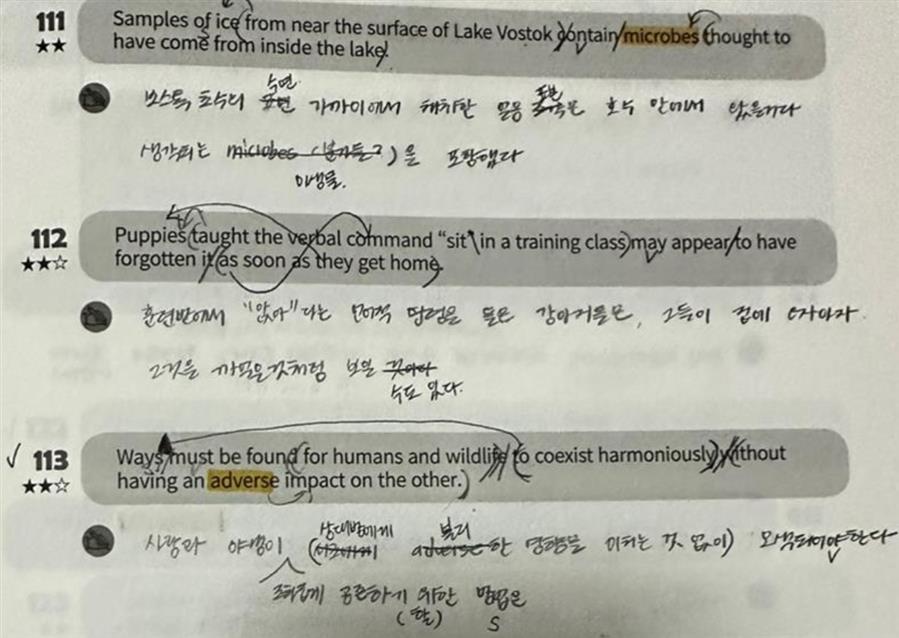 111
Samples of ice from near the surface of Lake Vostok contain microbes thought to
★★
have come from inside the lake.
수면
보스톡 호수의 표면 가까이에서 채취한 얼음 표본은 호수 안에서 왔을거라
생각되는 microbes ( )을 포함했다
미생물.
112
Puppies taught the verbal command “sit” in a training class may appear to have
★★☆
forgotten it as soon as they get home.
훈련반에서 "앉아"라는 언어적 명령을 들은 강아지들은, 그들이 집에 오자마자
그것을 까먹은것처럼 보일
수도 있다.
✓ 113
Ways must be found for humans and wildlife to coexist harmoniously without
★★☆
having an adverse impact on the other.
상대방에게 불리
사람과 야생이 ( adverse한 영향을 미치는 것 없이) 모색되어야 한다
조화롭게 공존하기 위한 방법은
(할) S